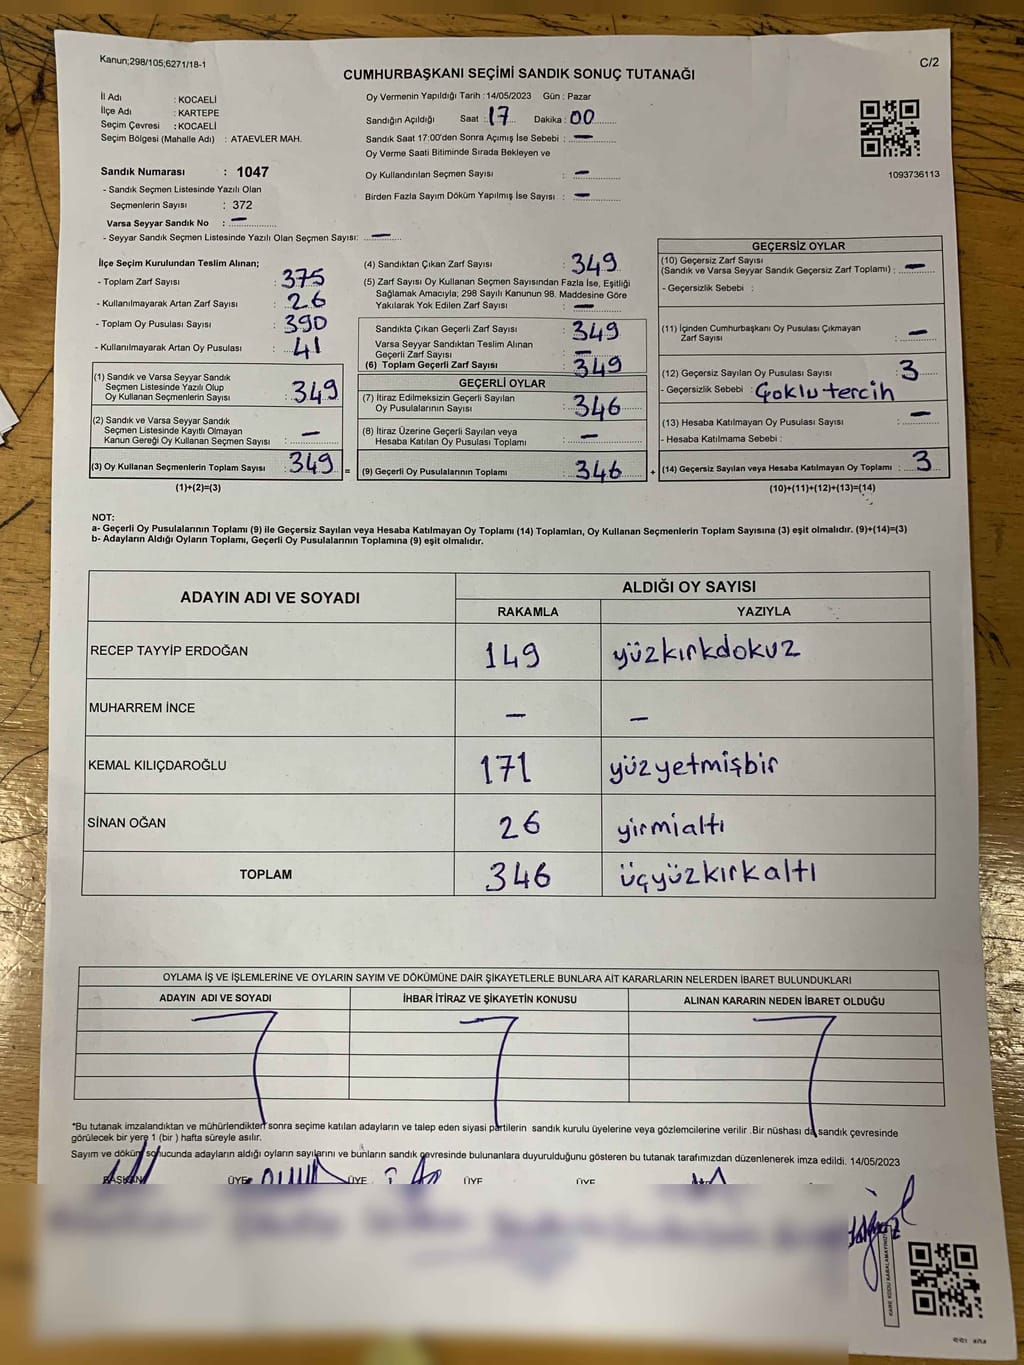 Kanun;298/105;6271/18-1
C/2
CUMHURBAŞKANI SEÇİMİ SANDIK SONUÇ TUTANAĞI
İl Adı : KOCAELİ
İlçe Adı : KARTEPE
Seçim Çevresi : KOCAELİ
Seçim Bölgesi (Mahalle Adı) : ATAEVLER MAH.
Oy Vermenin Yapıldığı Tarih :14/05/2023 Gün : Pazar
Sandığın Açıldığı Saat : 17 Dakika : 00
Sandık Saat 17:00'den Sonra Açımış İse Sebebi : —
Oy Verme Saati Bitiminde Sırada Bekleyen ve
Oy Kullandırılan Seçmen Sayısı : —
Birden Fazla Sayım Döküm Yapılmış İse Sayısı : —
1093736113
Sandık Numarası : 1047
- Sandık Seçmen Listesinde Yazılı Olan
Seçmenlerin Sayısı : 372
Varsa Seyyar Sandık No : —
- Seyyar Sandık Seçmen Listesinde Yazılı Olan Seçmen Sayısı: —
İlçe Seçim Kurulundan Teslim Alınan;
- Toplam Zarf Sayısı : 375
- Kullanılmayarak Artan Zarf Sayısı : 26
- Toplam Oy Pusulası Sayısı : 390
- Kullanılmayarak Artan Oy Pusulası : 41
(1) Sandık ve Varsa Seyyar Sandık
Seçmen Listesinde Yazılı Olup
Oy Kullanan Seçmenlerin Sayısı : 349
(2) Sandık ve Varsa Seyyar Sandık
Seçmen Listesinde Kayıtlı Olmayan
Kanun Gereği Oy Kullanan Seçmen Sayısı : —
(3) Oy Kullanan Seçmenlerin Toplam Sayısı : 349 =
(1)+(2)=(3)
(4) Sandıktan Çıkan Zarf Sayısı : 349
(5) Zarf Sayısı Oy Kullanan Seçmen Sayısından Fazla İse, Eşitliği
Sağlamak Amacıyla; 298 Sayılı Kanunun 98. Maddesine Göre
Yakılarak Yok Edilen Zarf Sayısı : —
Sandıkta Çıkan Geçerli Zarf Sayısı : 349
Varsa Seyyar Sandıktan Teslim Alınan
Geçerli Zarf Sayısı : —
(6) Toplam Geçerli Zarf Sayısı : 349
GEÇERLİ OYLAR
(7) İtiraz Edilmeksizin Geçerli Sayılan
Oy Pusulalarının Sayısı : 346
(8) İtiraz Üzerine Geçerli Sayılan veya
Hesaba Katılan Oy Pusulası Toplamı : —
(9) Geçerli Oy Pusulalarının Toplamı : 346 +
GEÇERSİZ OYLAR
(10) Geçersiz Zarf Sayısı
(Sandık ve Varsa Seyyar Sandık Geçersiz Zarf Toplamı) : —
- Geçersizlik Sebebi :
(11) İçinden Cumhurbaşkanı Oy Pusulası Çıkmayan
Zarf Sayısı : —
(12) Geçersiz Sayılan Oy Pusulası Sayısı : 3
- Geçersizlik Sebebi : Çoklu tercih
(13) Hesaba Katılmayan Oy Pusulası Sayısı : —
- Hesaba Katılmama Sebebi :
(14) Geçersiz Sayılan veya Hesaba Katılmayan Oy Toplamı : 3
(10)+(11)+(12)+(13)=(14)
NOT:
a- Geçerli Oy Pusulalarının Toplamı (9) ile Geçersiz Sayılan veya Hesaba Katılmayan Oy Toplamı (14) Toplamları, Oy Kullanan Seçmenlerin Toplam Sayısına (3) eşit olmalıdır. (9)+(14)=(3)
b- Adayların Aldığı Oyların Toplamı, Geçerli Oy Pusulalarının Toplamına (9) eşit olmalıdır.
ADAYIN ADI VE SOYADI ALDIĞI OY SAYISI
RAKAMLA YAZIYLA
RECEP TAYYİP ERDOĞAN 149 yüzkırkdokuz
MUHARREM İNCE — —
KEMAL KILIÇDAROĞLU 171 yüzyetmişbir
SİNAN OĞAN 26 yirmialtı
TOPLAM 346 üçyüzkırkaltı
OYLAMA İŞ VE İŞLEMLERİNE VE OYLARIN SAYIM VE DÖKÜMÜNE DAİR ŞİKAYETLERLE BUNLARA AİT KARARLARIN NELERDEN İBARET BULUNDUKLARI
ADAYIN ADI VE SOYADI İHBAR İTİRAZ VE ŞİKAYETİN KONUSU ALINAN KARARIN NEDEN İBARET OLDUĞU
*Bu tutanak imzalandıktan ve mühürlendikten sonra seçime katılan adayların ve talep eden siyasi partilerin sandık kurulu üyelerine veya gözlemcilerine verilir .Bir nüshası da sandık çevresinde
görülecek bir yere 1 (bir ) hafta süreyle asılır.
Sayım ve döküm sonucunda adayların aldığı oyların sayılarını ve bunların sandık çevresinde bulunanlara duyurulduğunu gösteren bu tutanak tarafımızdan düzenlenerek imza edildi. 14/05/2023
BAŞKAN ÜYE ÜYE ÜYE ÜYE